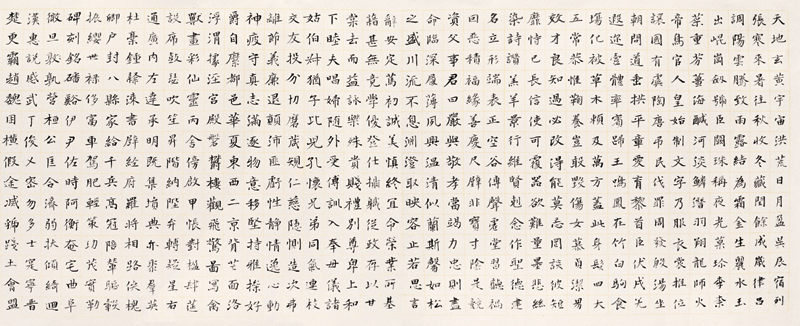 天地玄黃宇宙洪荒日月盈昃辰宿列
張寒來暑往秋收冬藏閏餘成歲律呂
調陽雲騰致雨露結為霜金生麗水玉
出崐崗劍號巨闕珠稱夜光菓珍李柰
菜重芥薑海鹹河淡鱗潛羽翔龍師火
帝鳥官人皇始制文字乃服衣裳推位
讓國有虞陶唐弔民伐罪周發殷湯坐
朝問道垂拱平章愛育黎首臣伏戎羌
遐邇壹體率賓歸王鳴鳳在竹白駒食
場化被草木賴及萬方蓋此身髮四大
五常恭惟鞠養豈敢毀傷女慕貞絜男
效才良知過必改得能莫忘罔談彼短
靡恃己長信使可覆器欲難量墨悲絲
染詩讚羔羊景行維賢剋念作聖德建
名立形端表正空谷傳聲虛堂習聽禍
因惡積福緣善慶尺璧非寶寸陰是競
資父事君曰嚴與敬孝當竭力忠則盡
命臨深履薄夙興溫清似蘭斯馨如松
之盛川流不息淵澄取映容止若思言
辭安定篤初誠美慎終宜令榮業所基
籍甚無竟學優登仕攝職從政存以甘
棠去而益詠樂殊貴賤禮別尊卑上和
下睦夫唱婦隨外受傅訓入奉母儀諸
姑伯叔猶子比兒孔懷兄弟同氣連枝
交友投分切磨箴規仁慈隱惻造次弗
離節義廉退顛沛匪虧性靜情逸心動
神疲守真志滿逐物意移堅持雅操好
爵自縻都邑華夏東西二京背芒面洛
浮渭據涇宮殿盤鬱樓觀飛驚圖寫禽
獸畫彩仙靈丙舍傍啟甲帳對楹肆筵
設席鼓瑟吹笙升階納陛弁轉疑星右
通廣內左達承明既集墳典亦聚群英
杜稾鍾隸漆書壁經府羅將相路俠槐
卿戶封八縣家給千兵高冠陪輦驅轂
振纓世祿侈富車駕肥輕策功茂實勒
碑刻銘磻谿伊尹佐時阿衡奄宅曲阜
微旦孰營桓公匡合濟弱扶傾綺迴
漢惠說感武丁俊乂密勿多士寔寧晉
楚更霸趙魏困橫假途滅虢踐土會盟